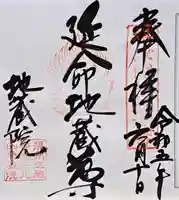 奉拝
令和五年
六月十日
延命地蔵尊
地蔵院